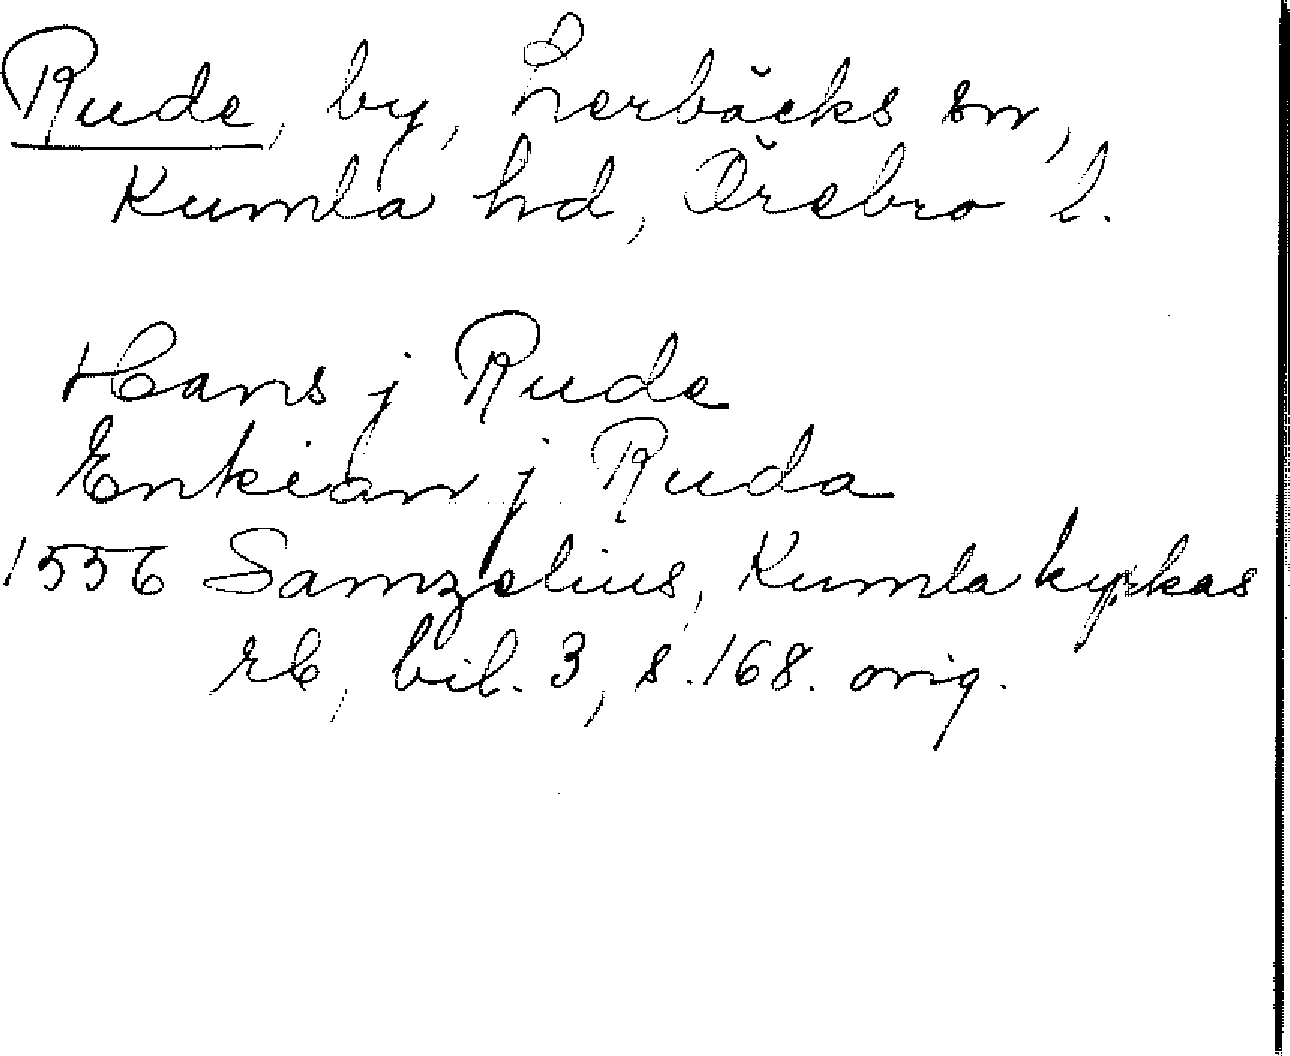 Rude, by, Lerbäcks sn,
Kumla hd, Örebro l.
Hans j Rude
Enkian j Ruda
1556 Samzelius, Kumla kyrkas
rb, bil. 3, s. 168. orig.